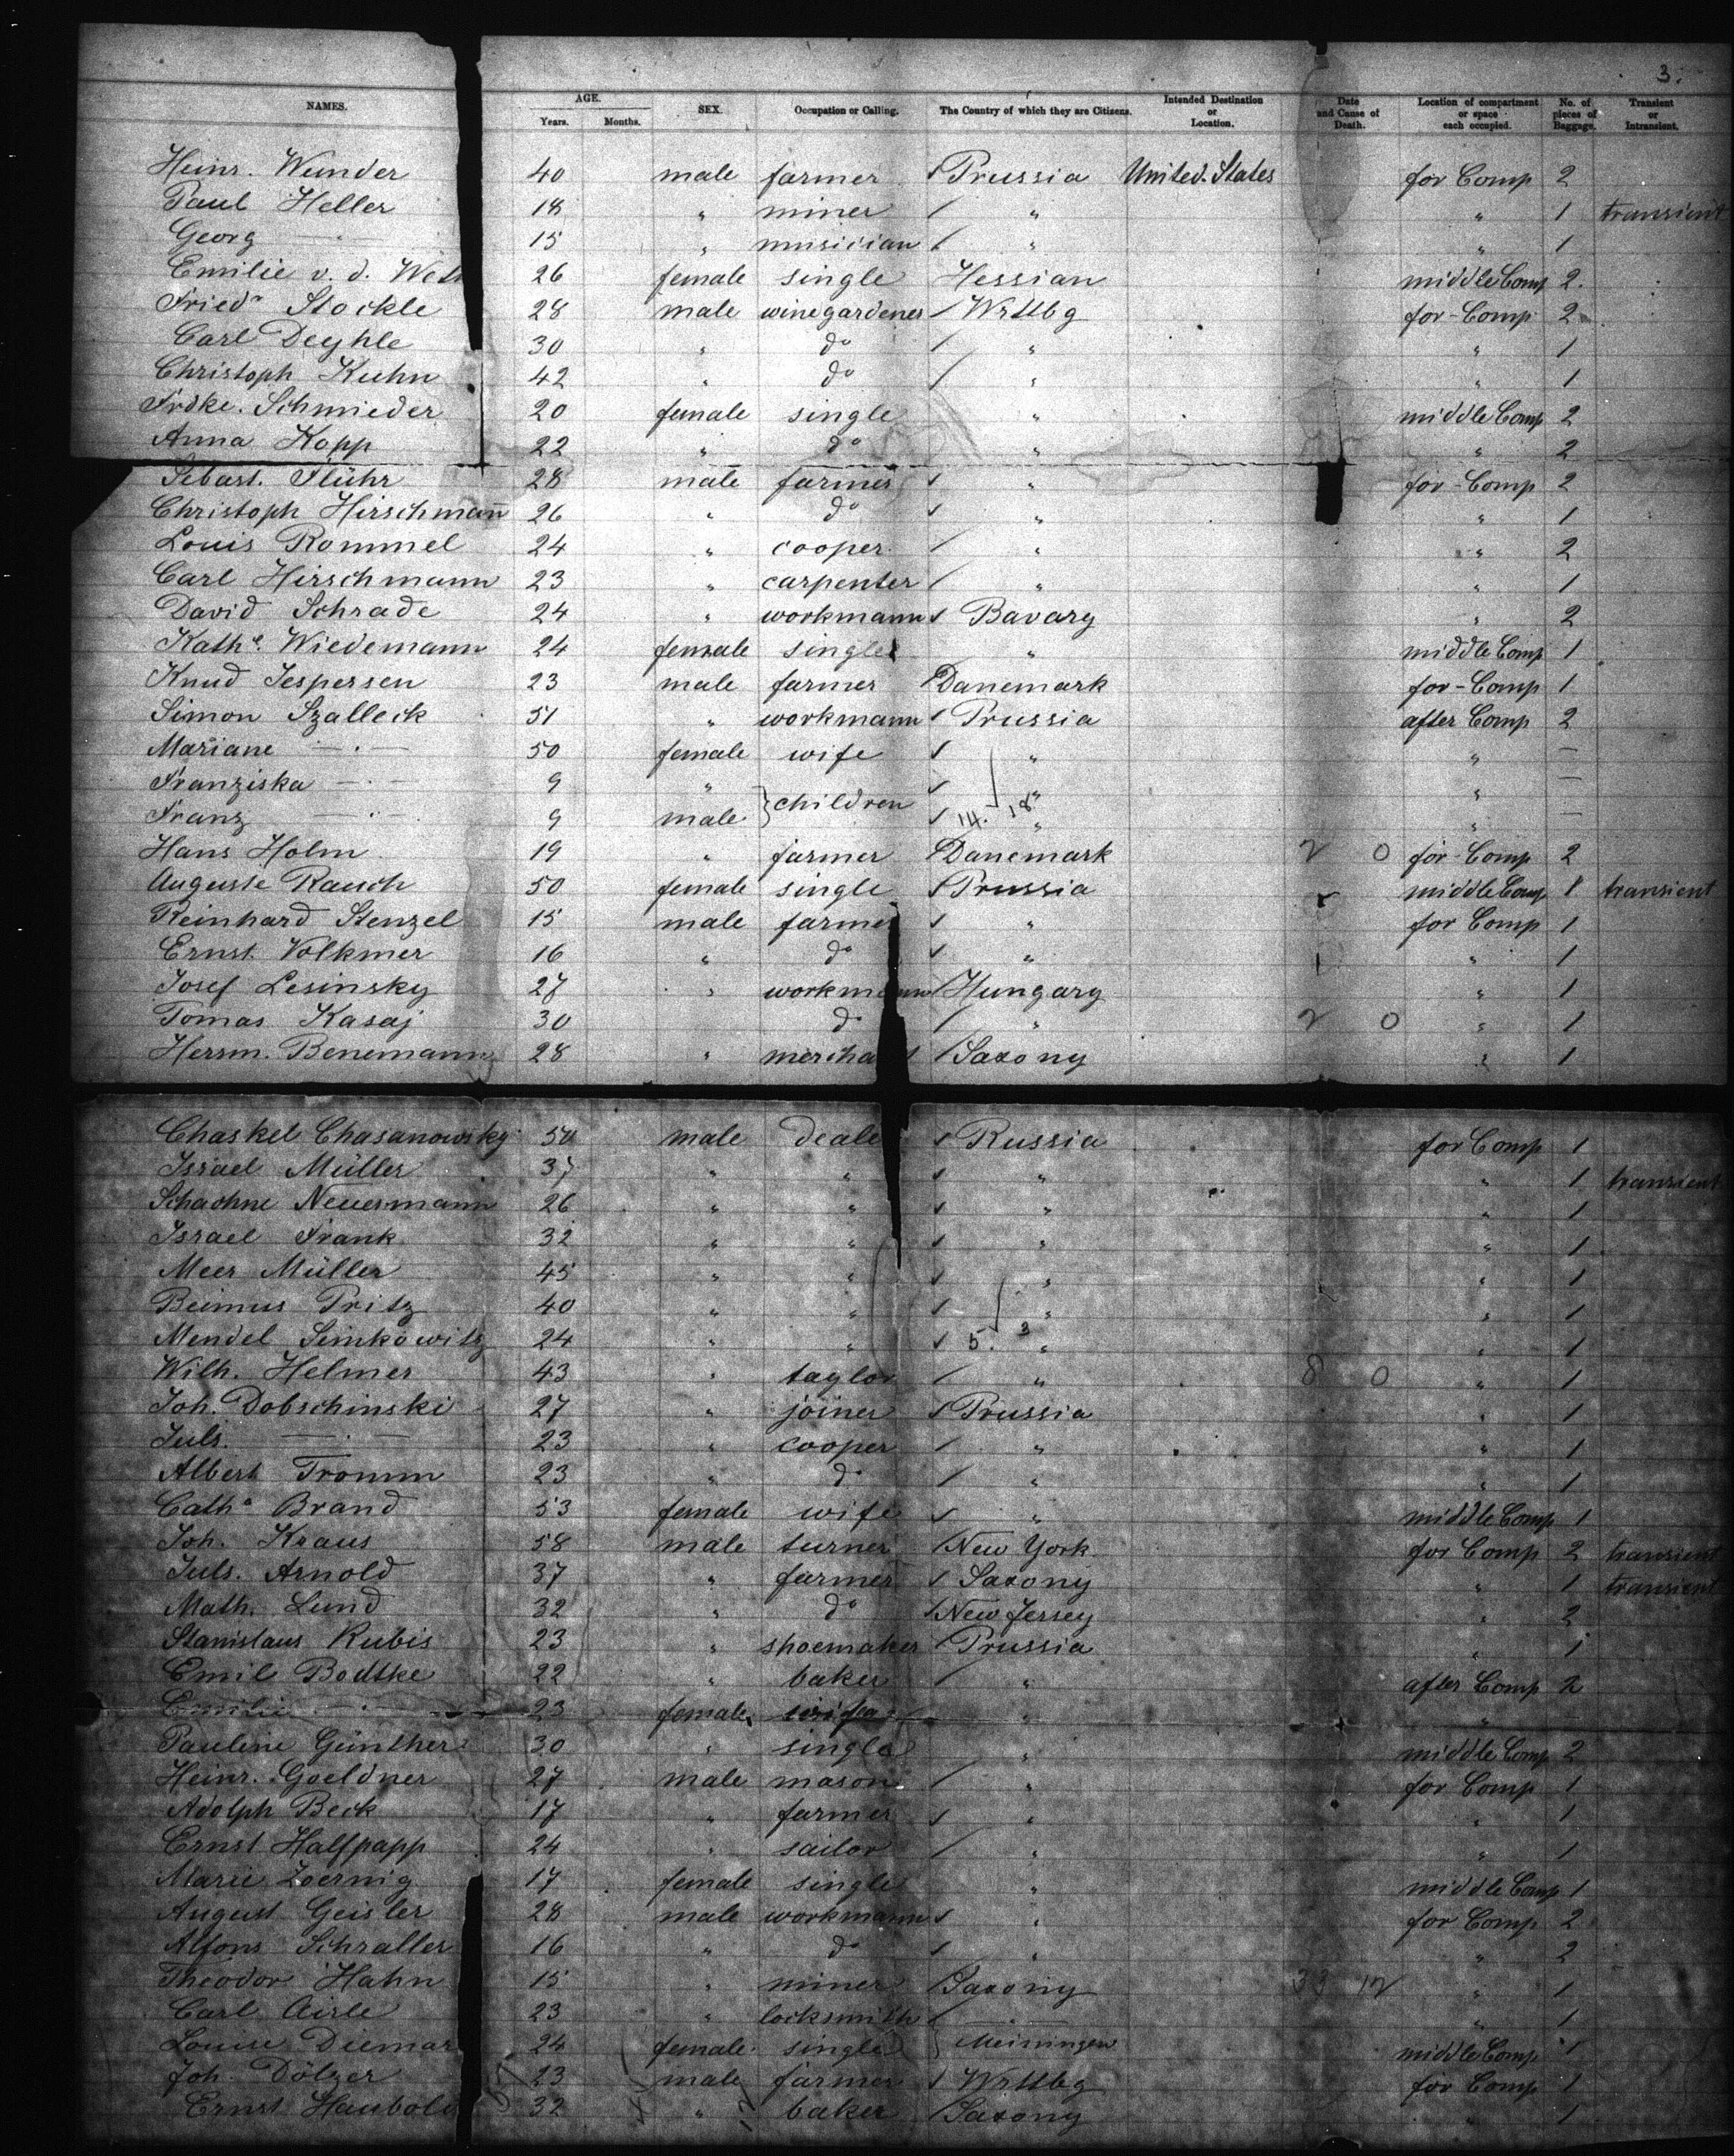 3.
NAMES. AGE. Years. Months. SEX. Occupation or Calling. The Country of which they are Citizens. Intended Destination or Location. Date and Cause of Death. Location of compartment or space each occupied. No. of pieces of Baggage. Transient or Intransient.
Heinr. Wunder 40 male farmer Prussia United States for Comp 2
Paul Heller 18 " miner " " 1 transient
Georg — 15 " musician " " 1
Emilie v. d. Weth 26 female single Hessian middle Comp 2.
Friedr Stockle 28 male winegardener Wrttbg for-Comp 2
Carl Deyhle 30 " do " " 1
Christoph Kuhn 42 " do " " 1
Frdke. Schmieder 20 female single " middle Comp 2
Anna Kopp 22 " do " " 2
Sebast. Flühr 28 male farmer " for-Comp 2
Christoph Hirschmann 26 " do " " 1
Louis Rommel 24 " cooper " " 2
Carl Hirschmann 23 " carpenter " " 1
David Schrade 24 " workmann Bavary " 2
Kathe. Wiedemann 24 female single " middle Comp 1
Knud Jespersen 23 male farmer Danemark for-Comp 1
Simon Szalleck 51 " workmann Prussia after Comp 2
Mariane — . — 50 female wife " " —
Franziska — . — 9 " } children " " —
Franz — . — 9 male 14. 18 " " —
Hans Holm 19 " farmer Danemark 2 0 for-Comp 2
Auguste Rauch 50 female single Prussia middle Comp 1 transient
Reinhard Stenzel 15 male farmer " for Comp 1
Ernst Volkmer 16 " do " " 1
Josef Lesinsky 27 " workmann Hungary " 1
Tomas Kasaj 30 do " 2 0 " 1
Herrm. Benemann 28 " merchant Saxony " 1
Chaskel Chasanowsky 50 male dealer Russia for Comp 1
Israel Müller 37 " " " " 1 transient
Schachne Neuermann 26 " " " " 1
Israel Frank 32 " " " " 1
Meer Müller 45 " " " " 1
Beimus Pritz 40 " " " " 1
Mendel Simkowitz 24 " " 5. 3 " " 1
Wilh. Helmer 43 " taylor " 8 0 " 1
Joh. Dobschinski 27 " joiner Prussia " 1
Juls. — . — 23 " cooper " " 1
Albert Tromm 23 " do " " 1
Catha Brand 53 female wife " middle Comp 1
Joh. Kraus 58 male turner New York for Comp 2 transient
Juls. Arnold 37 " farmer Saxony " 1 transient
Math. Lund 32 " do New Jersey " 2
Stanislaus Kubis 23 " shoemaker Prussia " 1
Emil Bodtke 22 " baker " after Comp 2
Emilie — . — 23 female wife " " —
Pauline Günther 30 " single " middle Comp 2
Heinr. Goeldner 27 male mason " for Comp 1
Adolph Beck 17 " farmer " " 1
Ernst Halfpapp 24 " sailor " " 1
Marie Zoernig 17 female single " middle Comp 1
August Geisler 28 male workmann " for Comp 2
Alfons Schraller 16 " do " " 2
Theodor Hahn 15 " miner Saxony 33 12 " 1
Carl Airle 23 " locksmith " 1
Louise Diemar 24 female single } Meiningen middle Comp 1
Joh. Dölzer 23 male farmer Wrttbg for Comp 1
Ernst Haubold 32 " baker Saxony " 1